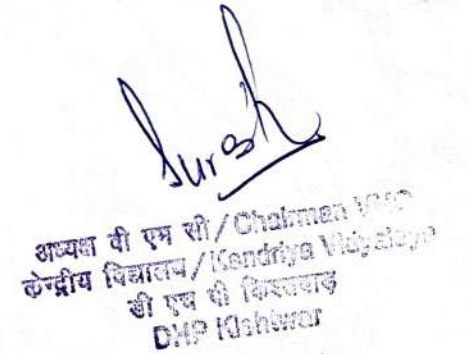 Suresh
अध्यक्ष वी एम सी/Chairman VMC
केन्द्रीय विद्यालय/Kendriya Vidyalaya
डी एच पी किश्तवाड़
DHP Kishtwar